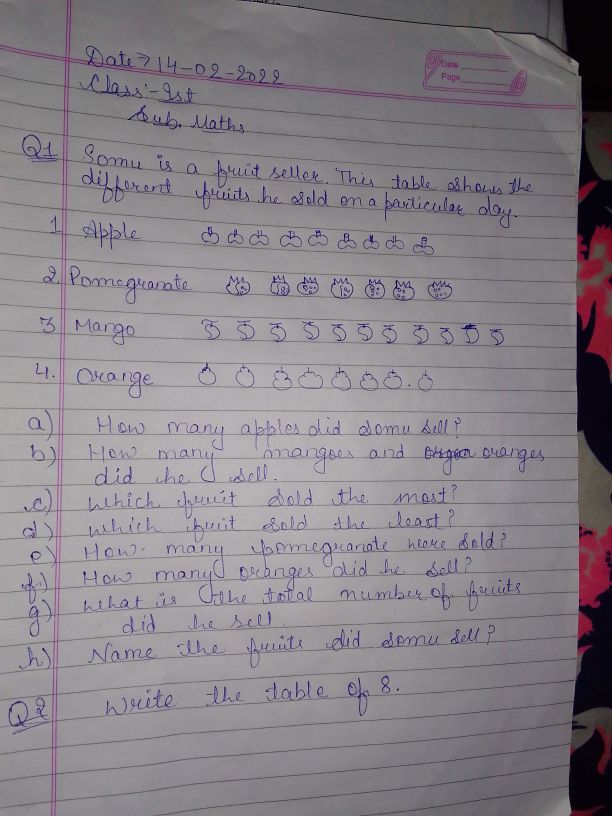 Date → 14-02-2022
Date
Page
Class:- Ist
Sub. Maths
Q1 Somu is a fruit seller. This table shows the
different fruits he sold on a particular day.
1 Apple
2. Pomegranate
3 Mango
4. Orange
a) How many apples did somu sell?
b) How many mangoes and oranges
did he sell.
c) which fruit sold the most?
d) which fruit sold the least?
e) How many pomegranate were sold?
f) How many oranges did he sell?
g) what is the total number of fruits
did he sell.
h) Name the fruits did somu sell?
Q2 Write the table of 8.